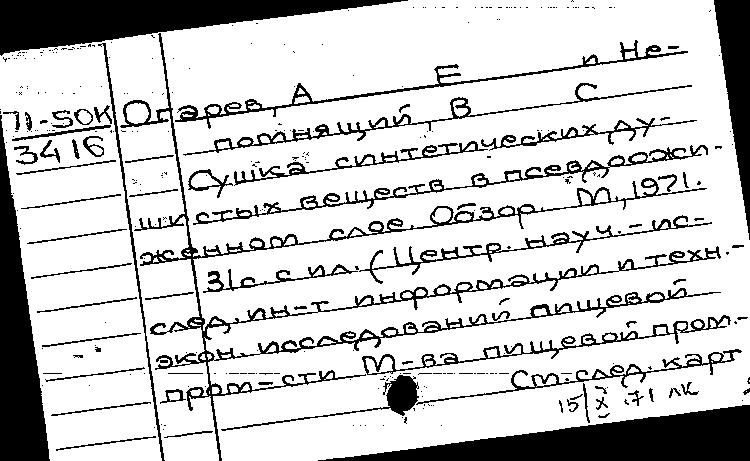 71-50К Огарев, А Е и Не-
3416 помнящий, В С
Сушка синтетических ду-
шистых веществ в псевдоожи-
женном слое. Обзор. М., 1971.
31с. с ил. (Центр. науч.-ис-
след. ин-т информации и техн.-
экон. исследований пищевой
пром-сти М-ва пищевой пром.-
См. след. карт
15/X.71 лк